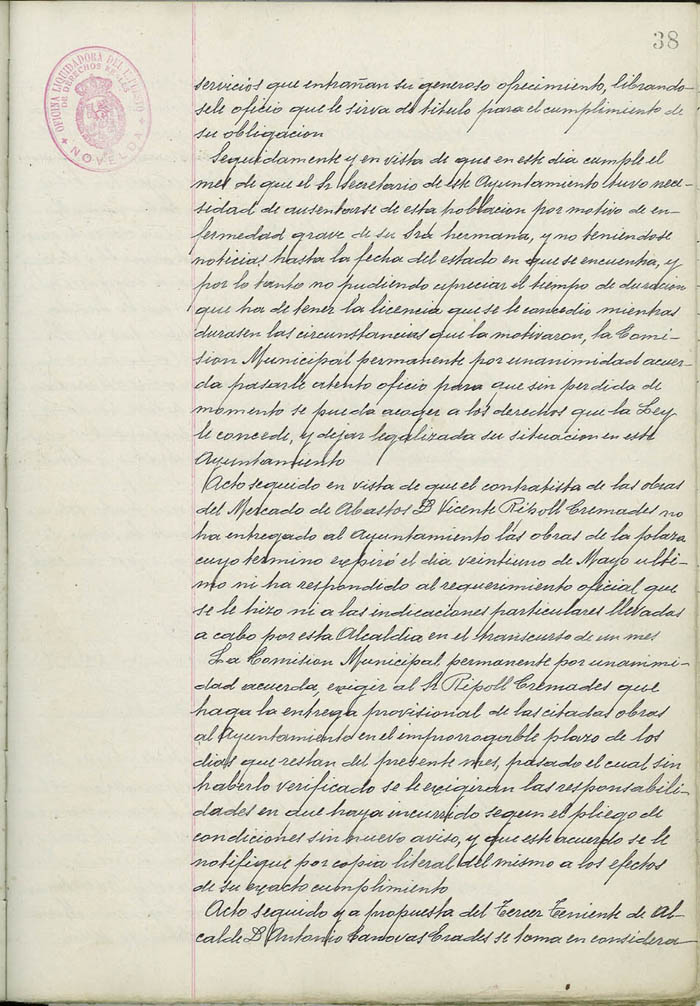 38
OFICINA LIQUIDADORA DEL
DE DERECHOS REALES
NOVELDA
servicios que entrañan su generoso ofrecimiento, librando-
sele oficio que le sirva de titulo para el cumplimiento de
su obligacion
Seguidamente y en vista de que en este dia cumple el
mes de que el Sr Secretario de este Ayuntamiento tuvo nece-
sidad de ausentarse de esta poblacion por motivo de en-
fermedad grave de su Sra hermana, y no teniendose
noticias hasta la fecha del estado en que se encuentra, y
por lo tanto no pudiendo apreciar el tiempo de duracion
que ha de tener la licencia que se le concedio mientras
durasen las circunstancias que la motivaron, la Comi-
sion Municipal permanente por unanimidad acuer-
da pasarle atento oficio para que sin perdida de
momento se pueda acoger a los derechos que la Ley
le concede, y dejar legalizada su situacion en este
Ayuntamiento
Acto seguido en vista de que el contratista de las obras
del Mercado de Abastos D. Vicente Ripoll Cremades no
ha entregado al Ayuntamiento las obras de la plaza
cuyo termino expiró el dia veintiuno de Mayo ulti-
mo ni ha respondido al requerimiento oficial que
se le hizo ni a las indicaciones particulares llevadas
a cabo por esta Alcaldia en el transcurso de un mes
La Comision Municipal permanente por unanimi-
dad acuerda, exigir al Sr Ripoll Cremades que
haga la entrega provisional de las citadas obras
al Ayuntamiento en el improrrogable plazo de los
dias que restan del presente mes, pasado el cual sin
haberlo verificado se le exigiran las responsabili-
dades en que haya incurrido segun el pliego de
condiciones sin nuevo aviso, y que este acuerdo se le
notifique por copia literal del mismo a los efectos
de su exacto cumplimiento
Acto seguido y a propuesta del Tercer Teniente de Al-
calde D. Antonio Canovas Erades se toma en considera-